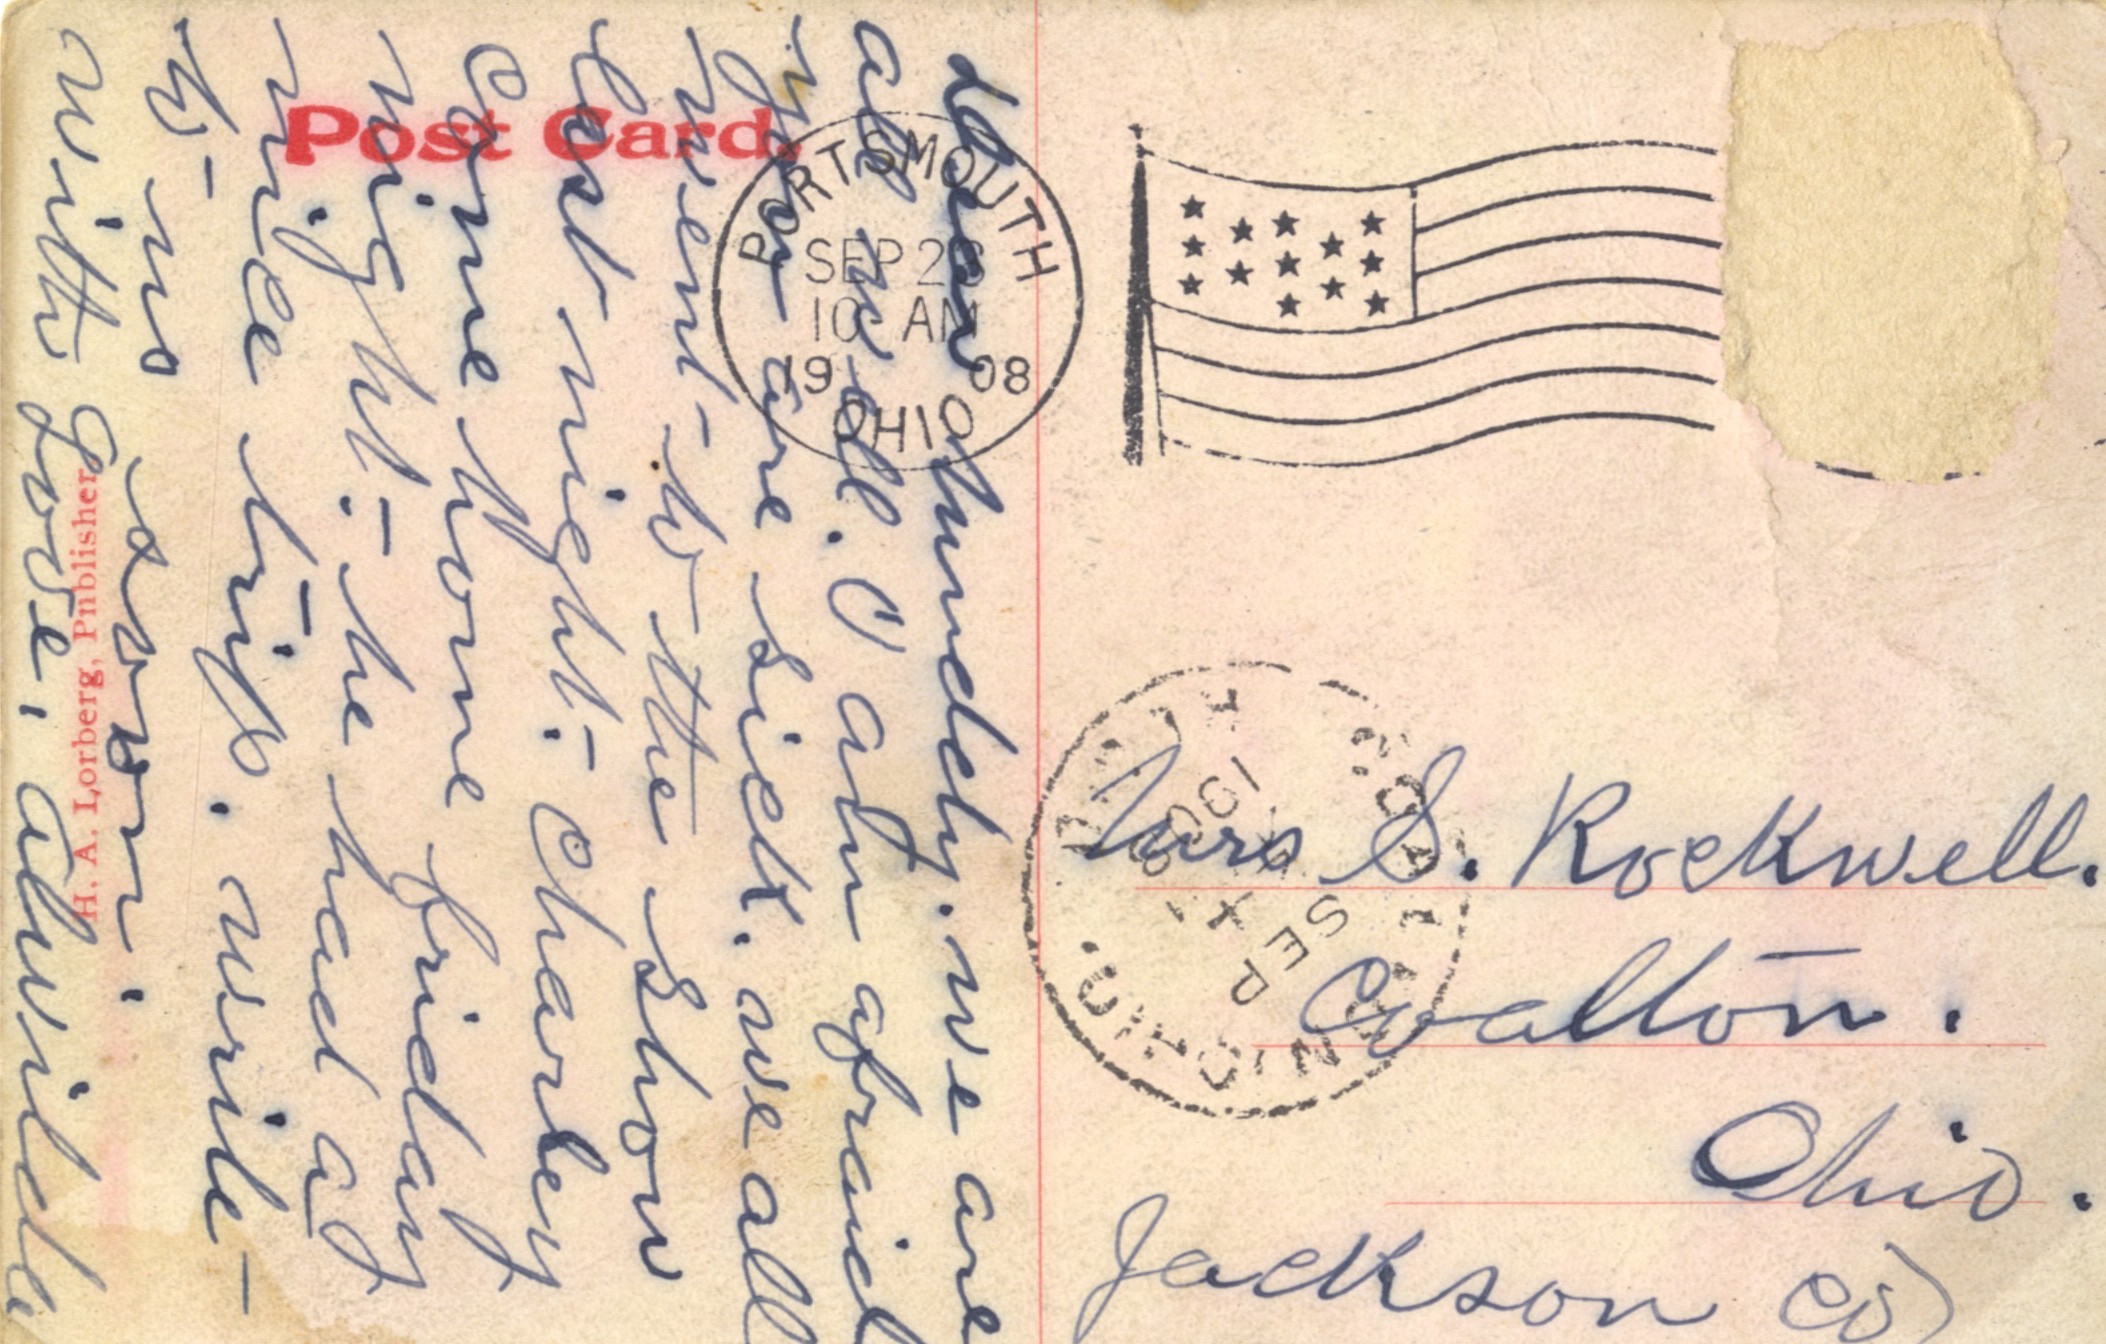 Post Card.
H. A. Lorberg, Publisher
PORTSMOUTH
SEP 28
10 AM
1908
OHIO
dear hunddy. we are
all well. I am afraid
you are sick. we all
went to the show
last night. Charley
come home friday
night. he had a
nice trip. write
to us soon.
with Love, alwilda
COALTON, OHIO.
SEP
1908
Mrs S. Rockwell.
Coalton.
Ohio.
Jackson Co